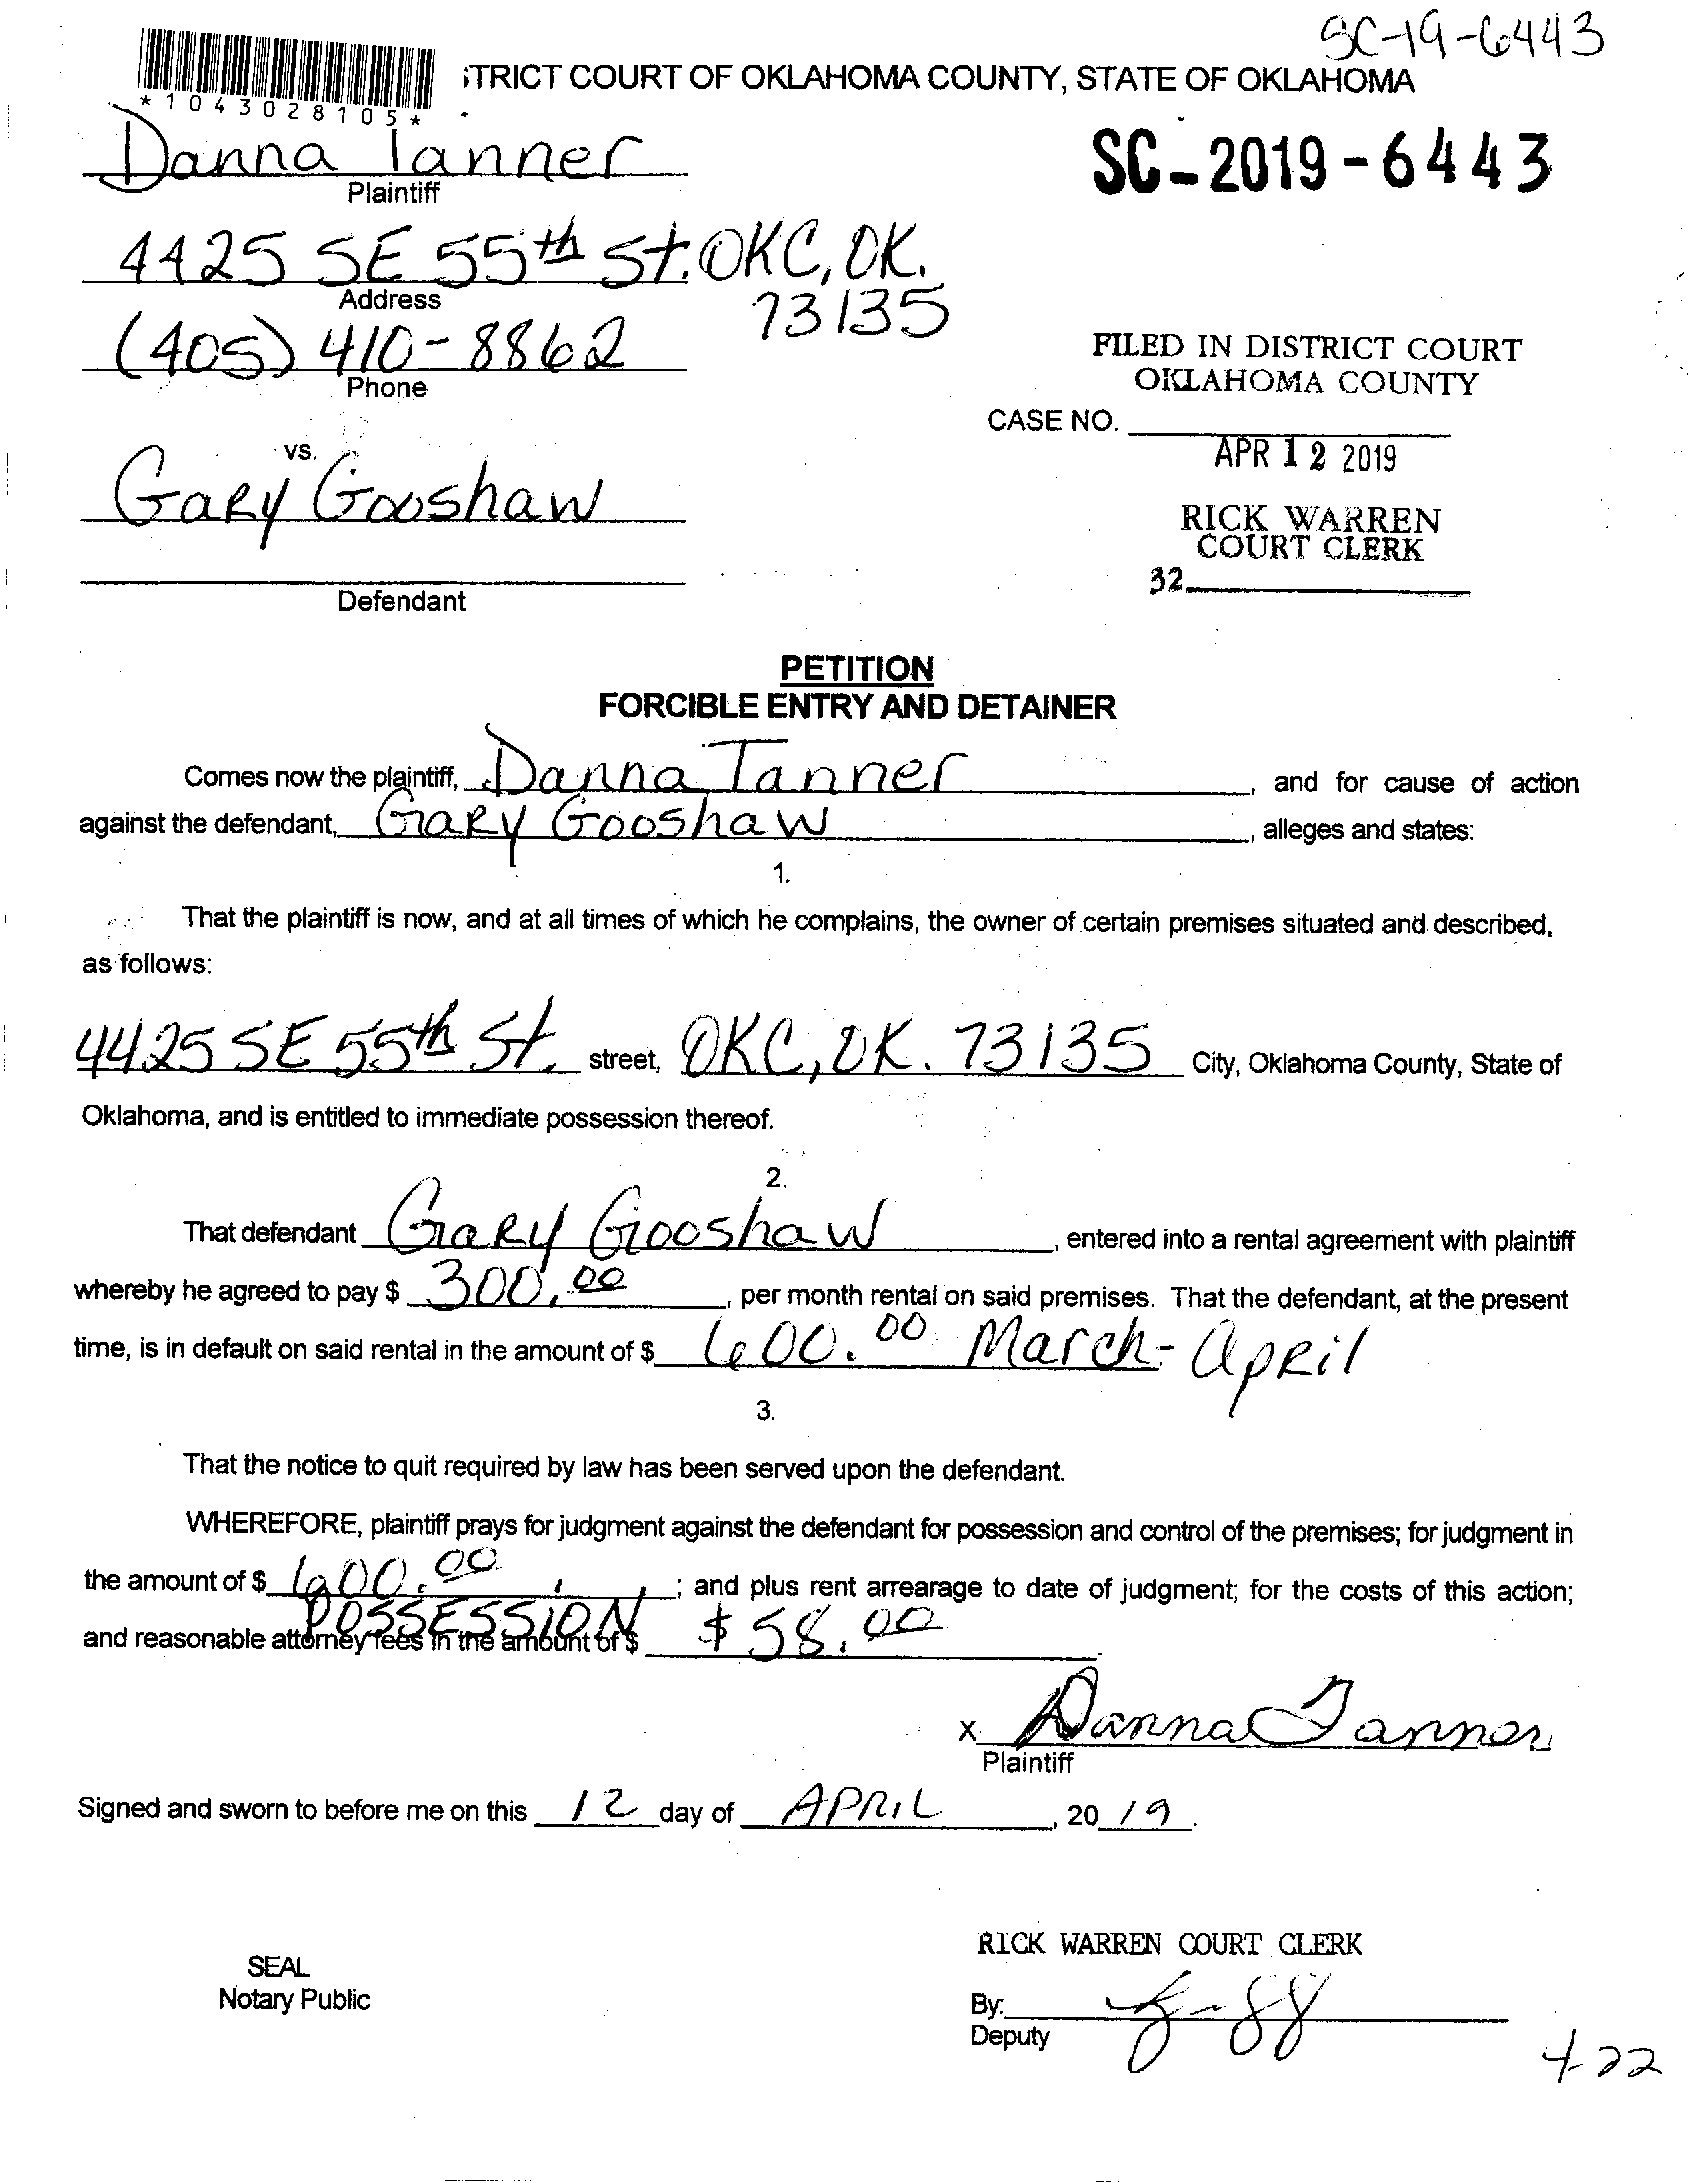 SC-19-6443
iTRICT COURT OF OKLAHOMA COUNTY, STATE OF OKLAHOMA
*1043028105*
Danna Tanner
Plaintiff
SC-2019-6443
4425 SE 55th St. OKC, OK.
Address
73135
(405) 410-8862
Phone
FILED IN DISTRICT COURT
OKLAHOMA COUNTY
CASE NO.
APR 12 2019
vs.
Gary Gooshaw
RICK WARREN
COURT CLERK
32
Defendant
PETITION
FORCIBLE ENTRY AND DETAINER
Comes now the plaintiff, Danna Tanner, and for cause of action
against the defendant, Gary Gooshaw, alleges and states:
1.
That the plaintiff is now, and at all times of which he complains, the owner of certain premises situated and described,
as follows:
4425 SE 55th St. street, OKC, OK. 73135 City, Oklahoma County, State of
Oklahoma, and is entitled to immediate possession thereof.
2.
That defendant Gary Gooshaw, entered into a rental agreement with plaintiff
whereby he agreed to pay $ 300.00, per month rental on said premises. That the defendant, at the present
time, is in default on said rental in the amount of $ 600.00 March-April
3.
That the notice to quit required by law has been served upon the defendant.
WHEREFORE, plaintiff prays for judgment against the defendant for possession and control of the premises; for judgment in
the amount of $ 600.00; and plus rent arrearage to date of judgment; for the costs of this action;
POSSESSION
and reasonable attorney fees in the amount of $ $58.00
x Danna Tanner
Plaintiff
Signed and sworn to before me on this 12 day of APRIL, 2019.
RICK WARREN COURT CLERK
SEAL
Notary Public
By:
Deputy
4-22